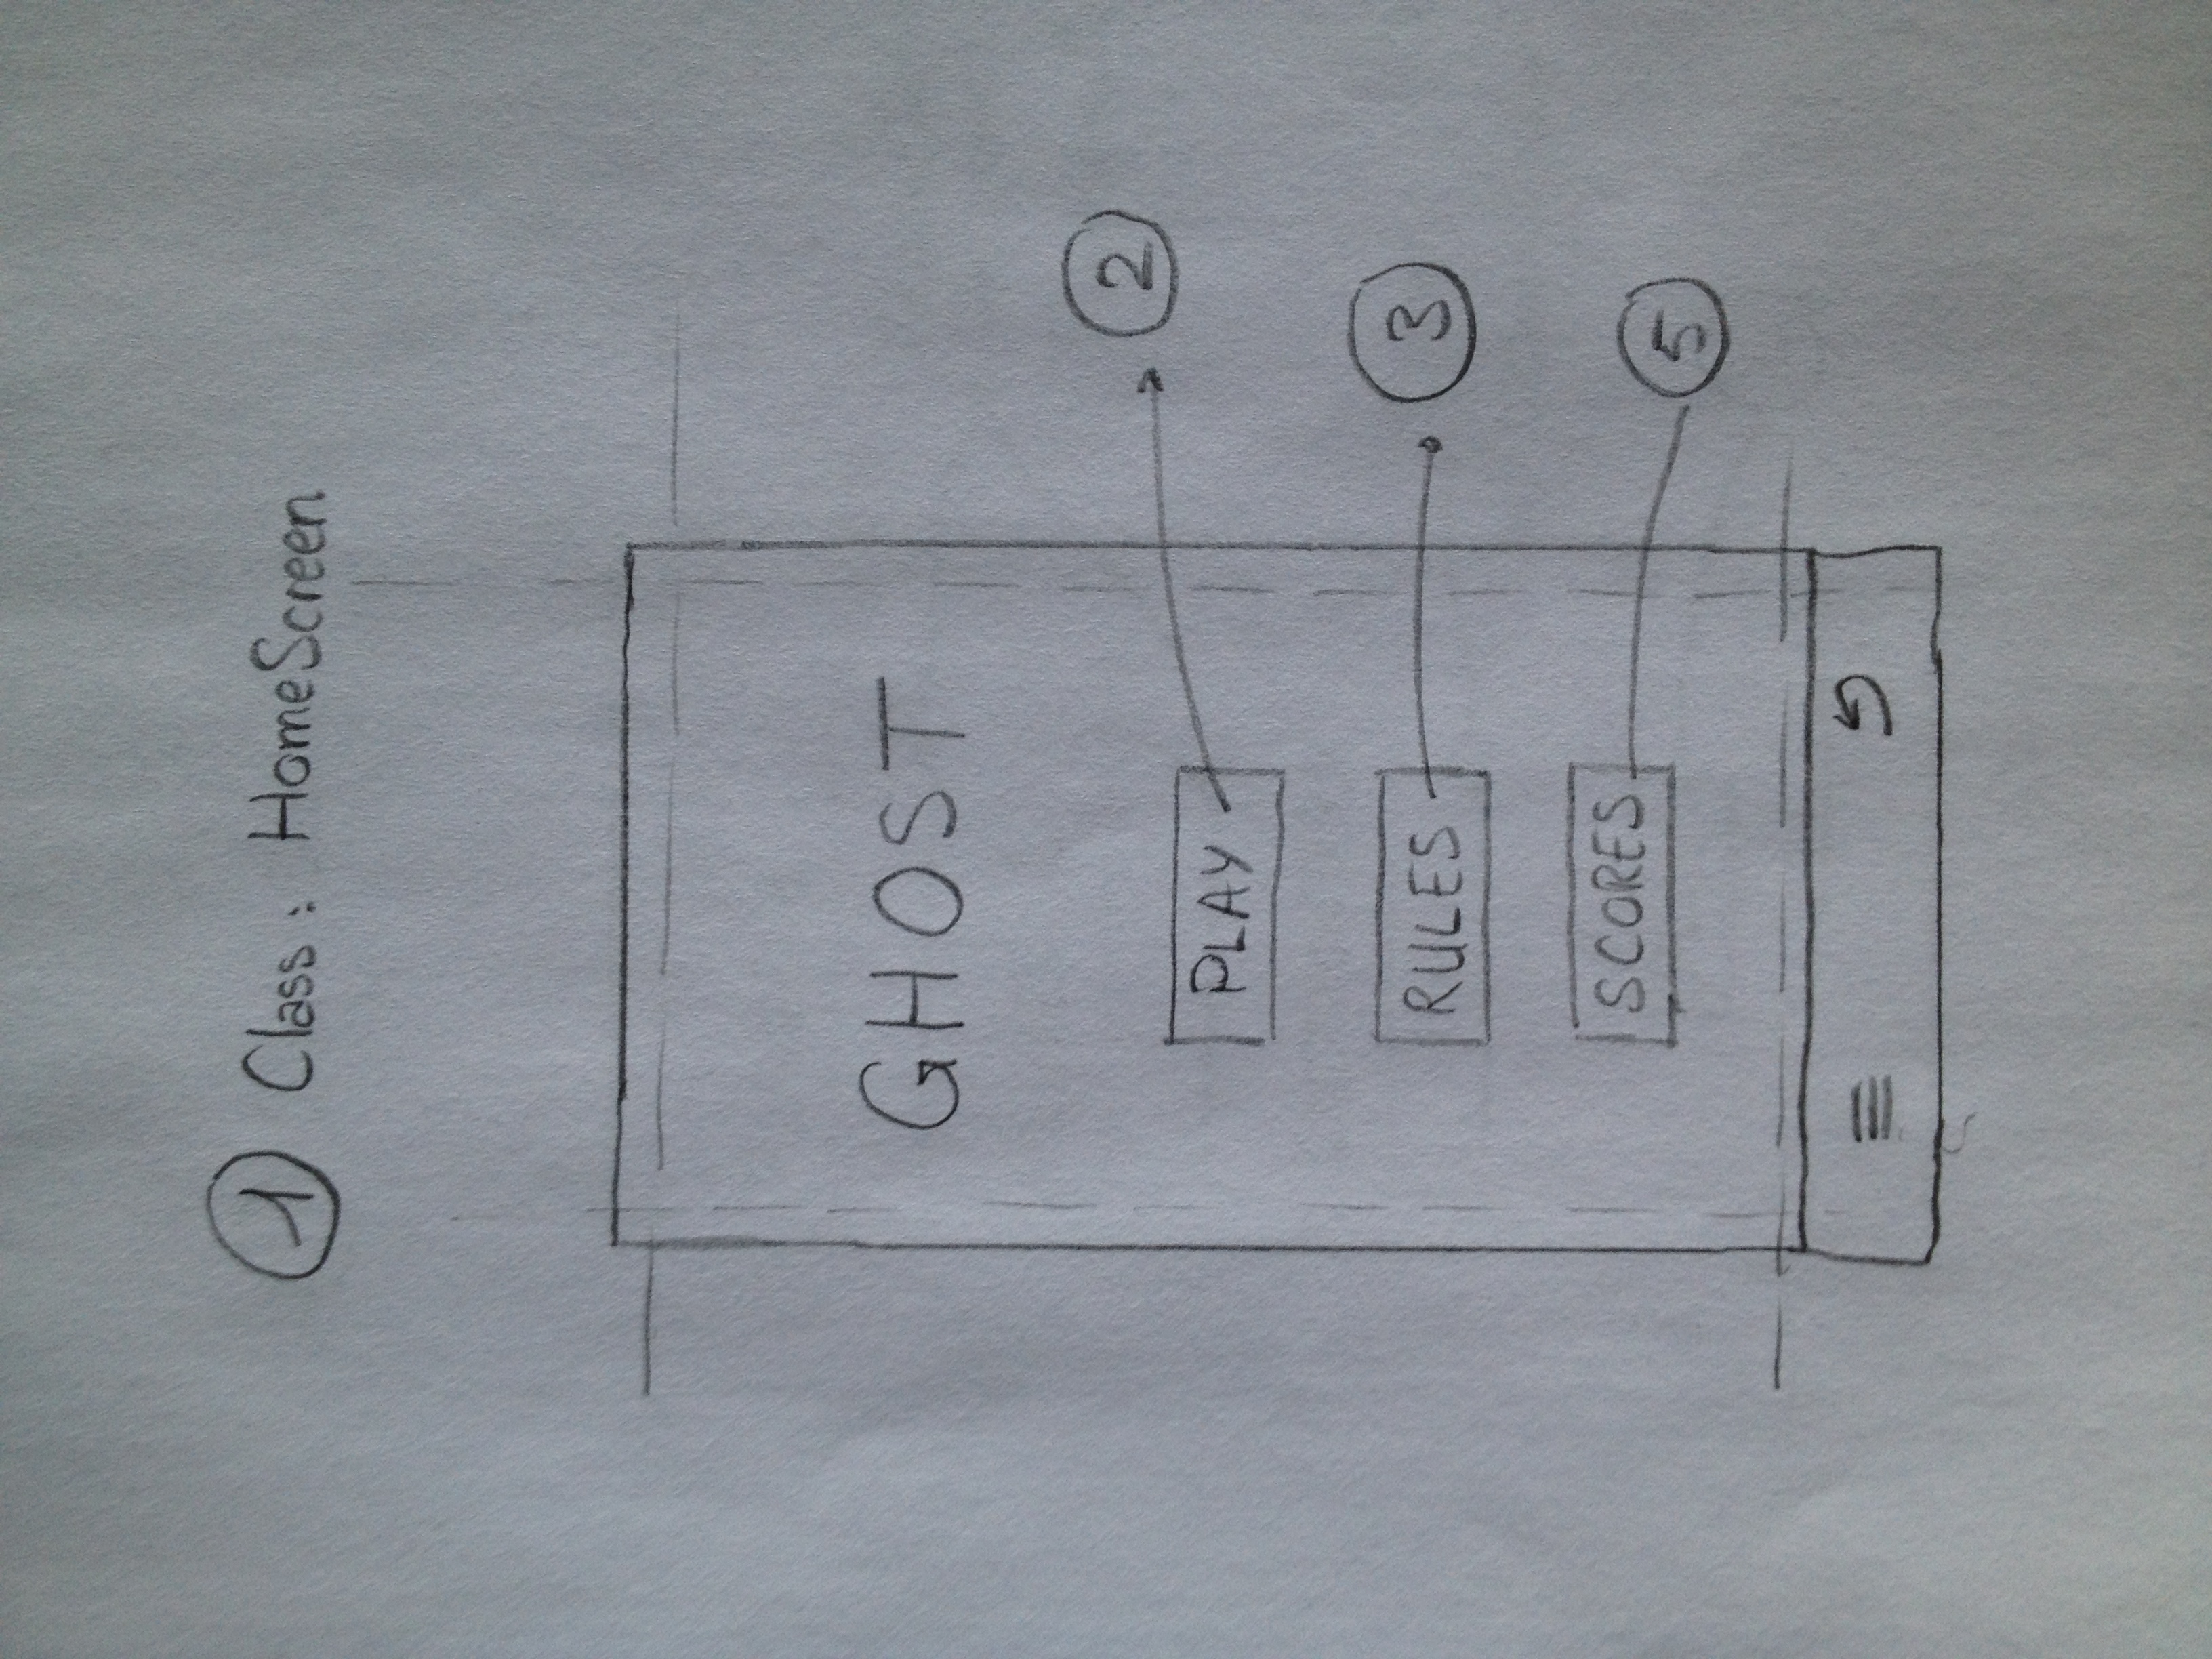 1 Class: HomeScreen
GHOST
2
PLAY
3
RULES
SCORES
5